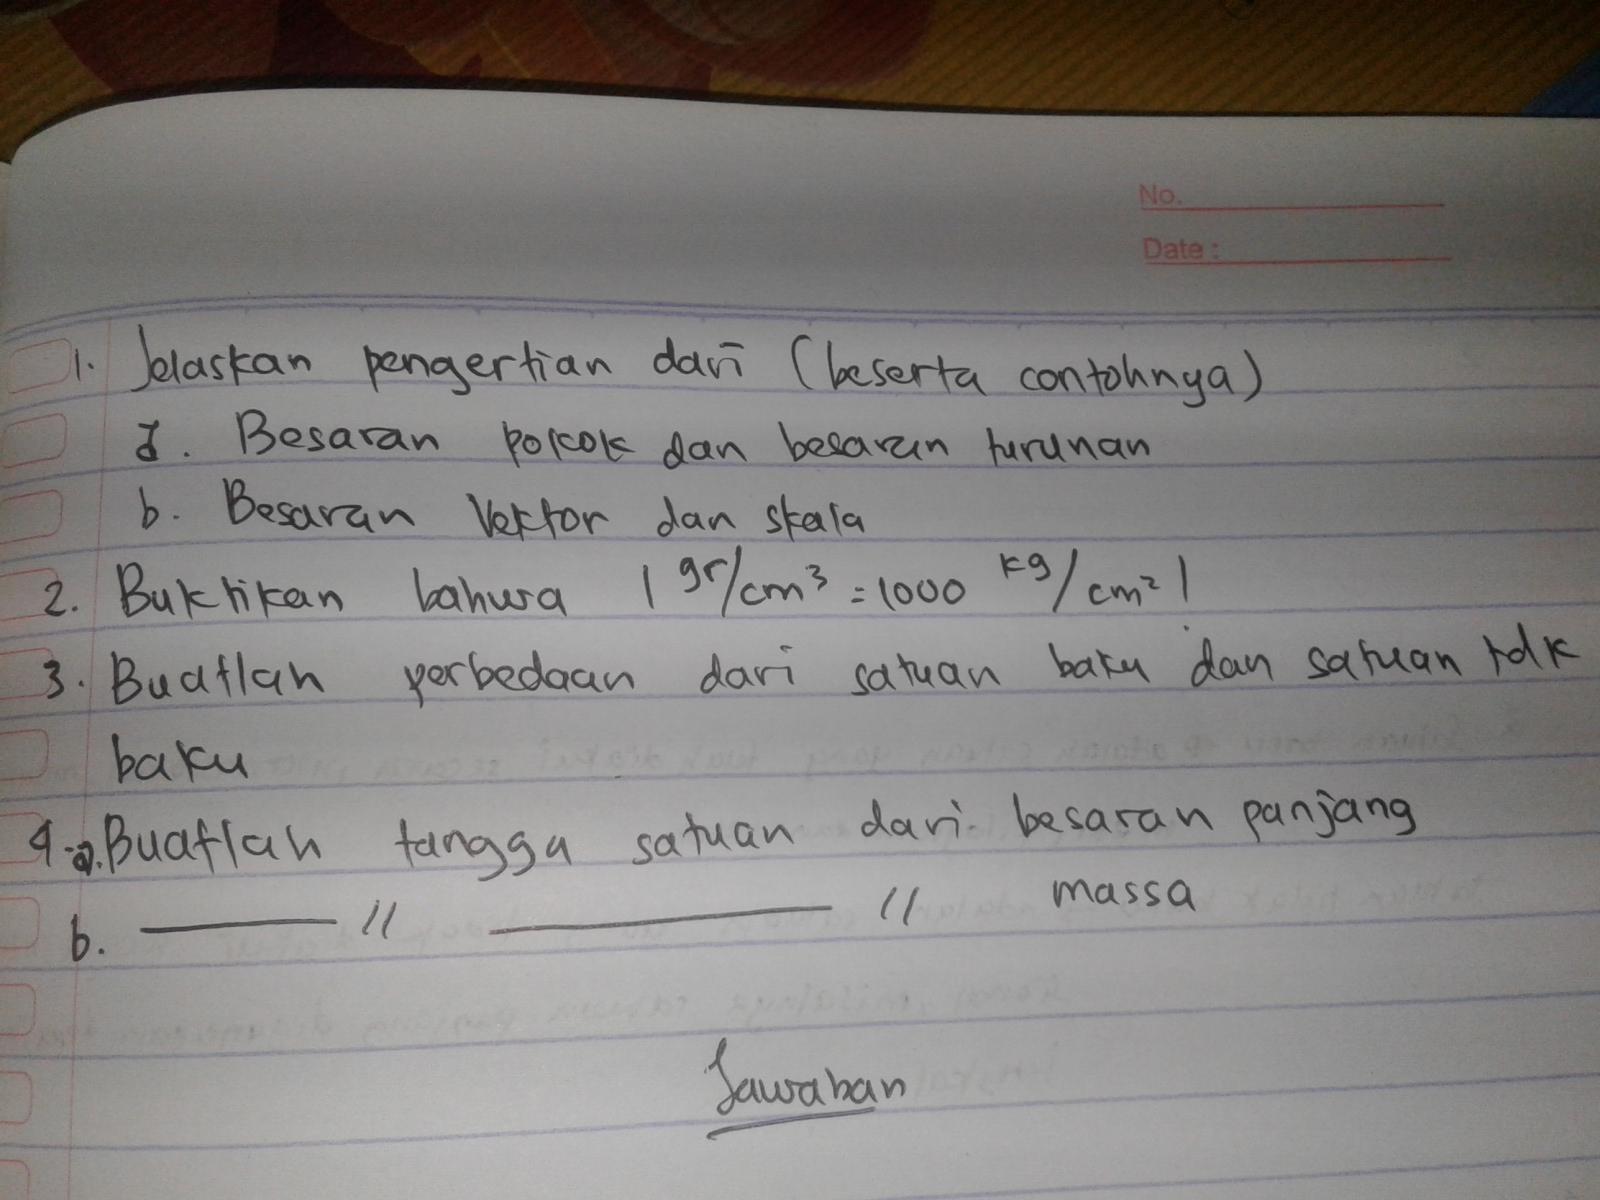 No.
Date :
1. Jelaskan pengertian dari (beserta contohnya)
a. Besaran pokok dan besaran turunan
b. Besaran Vektor dan skala
2. Buktikan bahwa 1 gr/cm³ = 1000 kg/cm² !
3. Buatlah perbedaan dari satuan baku dan satuan tdk
baku
4. a. Buatlah tangga satuan dari besaran panjang
b. —— // —— // massa
Jawaban